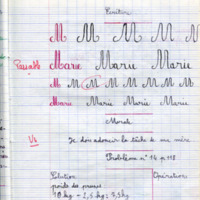 Ecriture
M M M M M N
Passable Marie Marie Marie
M M M M M M M M
Marie Marie Marie Marie
Morale
Vu Je dois adoucir la tâche de ma mère
Problème n° 14 p 118
Solution Opérations
poids des prunes
10 kg - 2,5 kg : 7,5 kg